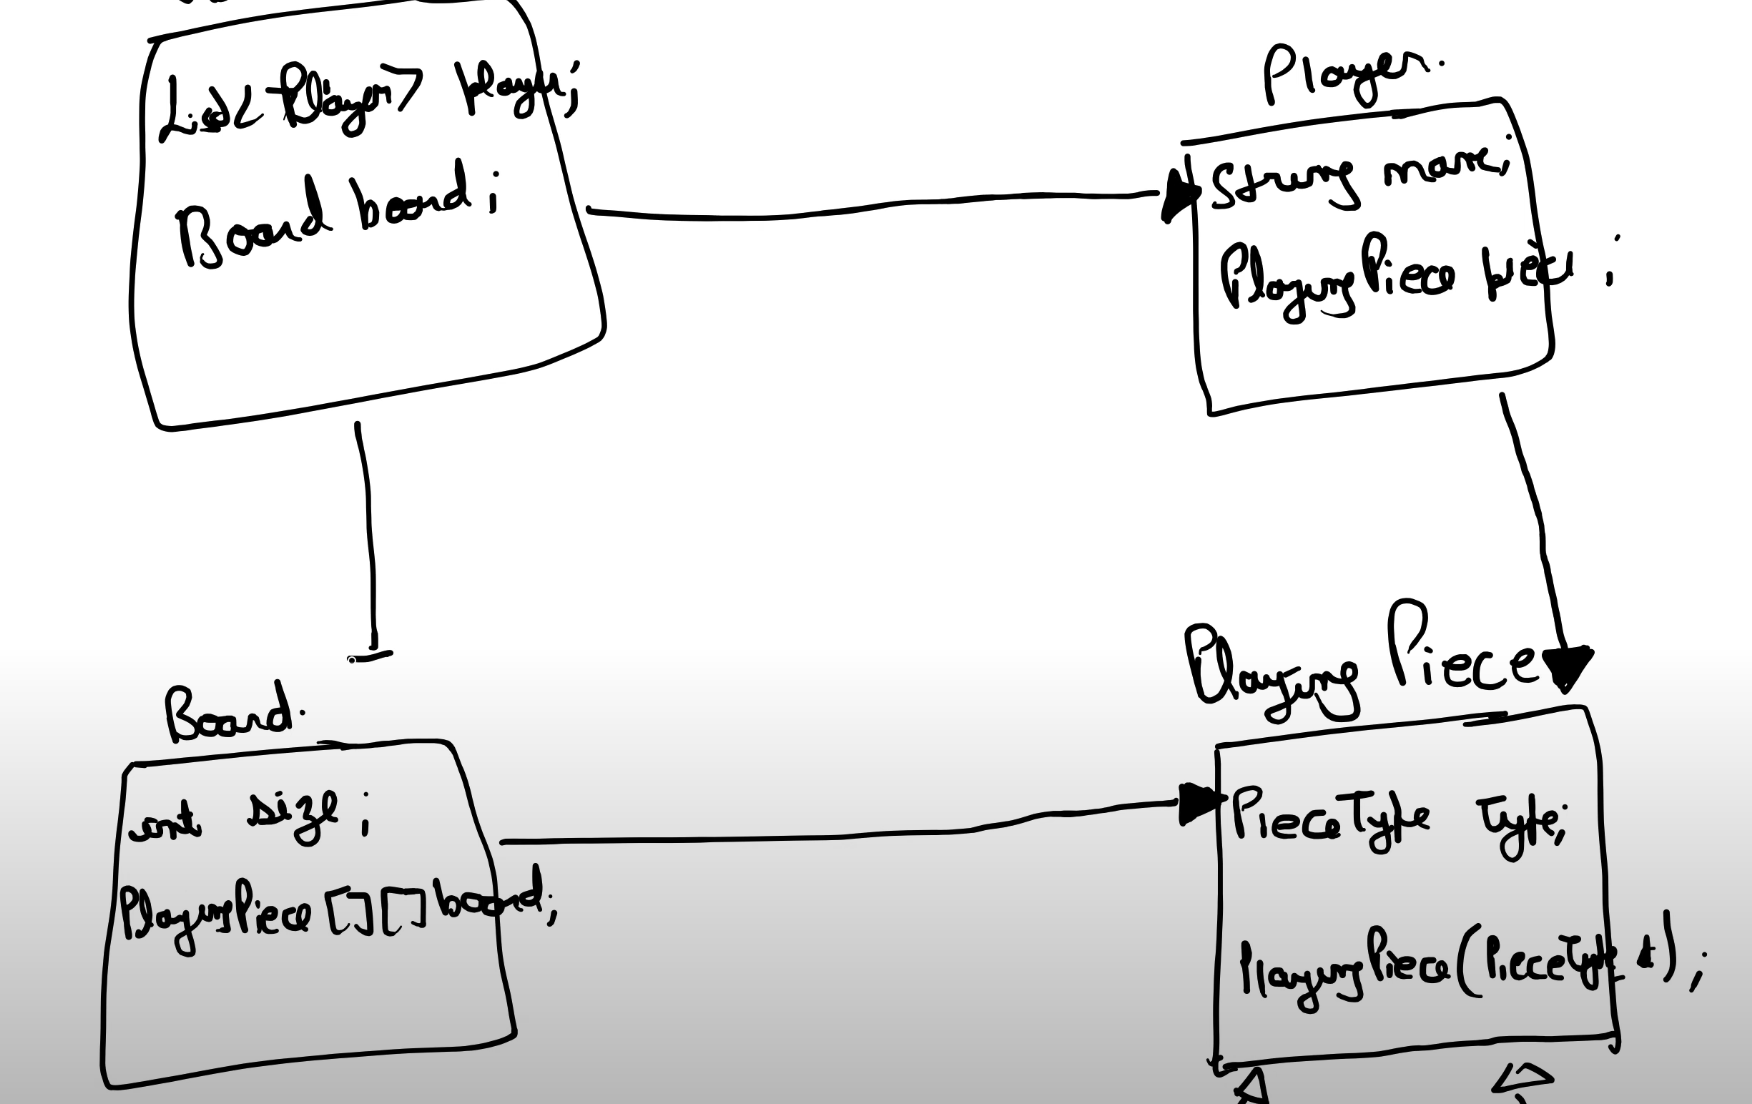 List<Player> player;
Board board;
Player.
String name;
PlayingPiece piece;
Board.
int size;
PlayingPiece[][] board;
Playing Piece
PieceType Type;
PlayingPiece(PieceType t);